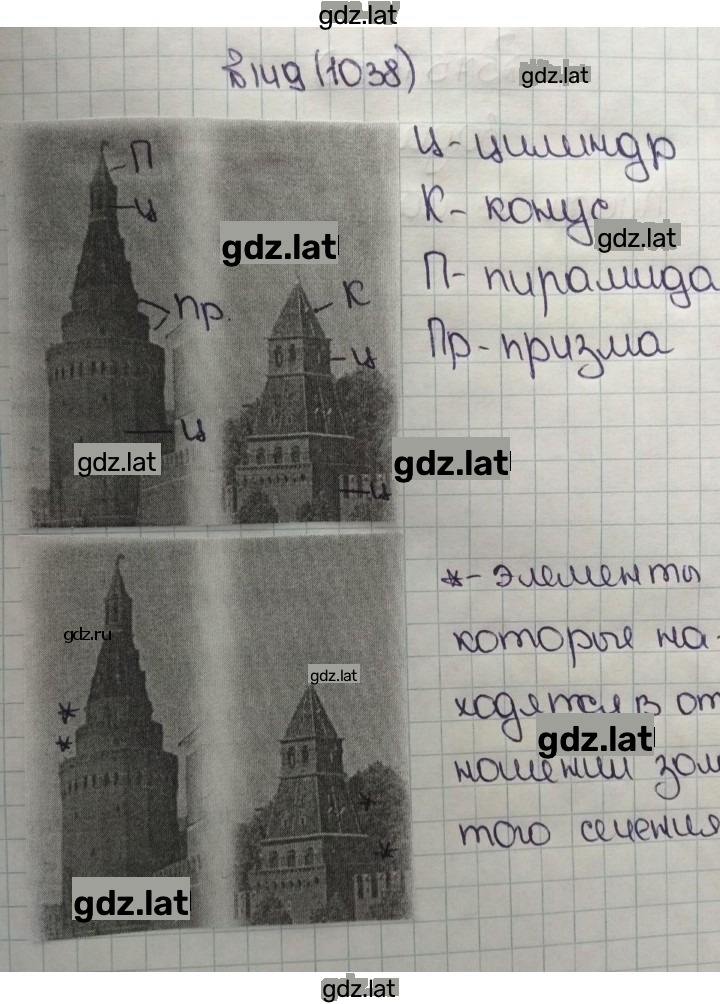 gdz.lat
№149 (1038)
gdz.lat
П
Ц
Пр.
Ц
gdz.lat
К
Ц
Ц
gdz.lat
Ц - цилиндр
К - конус
gdz.lat
П - пирамида
Пр - призма
gdz.lat
gdz.ru
gdz.lat
*
*
*
*
gdz.lat
* - элементы
которые на-
ходятся в от
gdz.lat
ношении зол
того сечения
gdz.lat